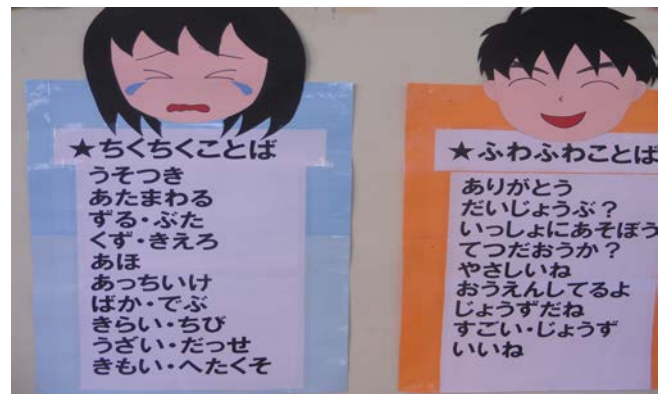 ★ちくちくことば
うそつき
あたまわる
ずる・ぶた
くず・きえろ
あほ
あっちいけ
ばか・でぶ
きらい・ちび
うざい・だっせ
きもい・へたくそ
★ふわふわことば
ありがとう
だいじょうぶ？
いっしょにあそぼう
てつだおうか？
やさしいね
おうえんしてるよ
じょうずだね
すごい・じょうず
いいね